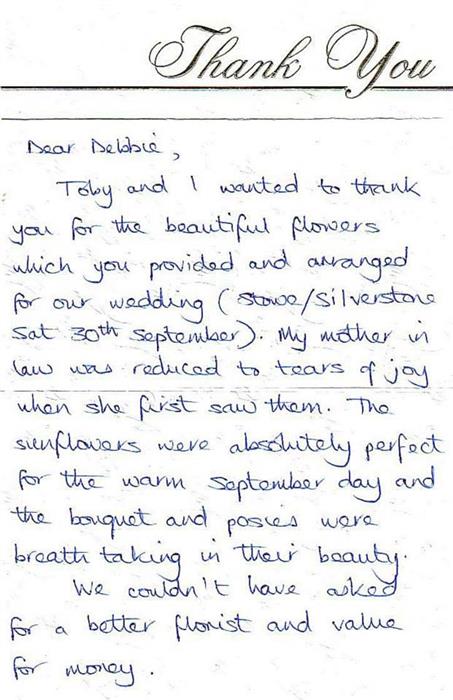 Thank You
Dear Debbie,
Toby and I wanted to thank
you for the beautiful flowers
which you provided and arranged
for our wedding (Stowe/Silverstone
Sat 30th September). My mother in
law was reduced to tears of joy
when she first saw them. The
sunflowers were absolutely perfect
for the warm September day and
the bouquet and posies were
breath taking in their beauty.
We couldn't have asked
for a better florist and value
for money.